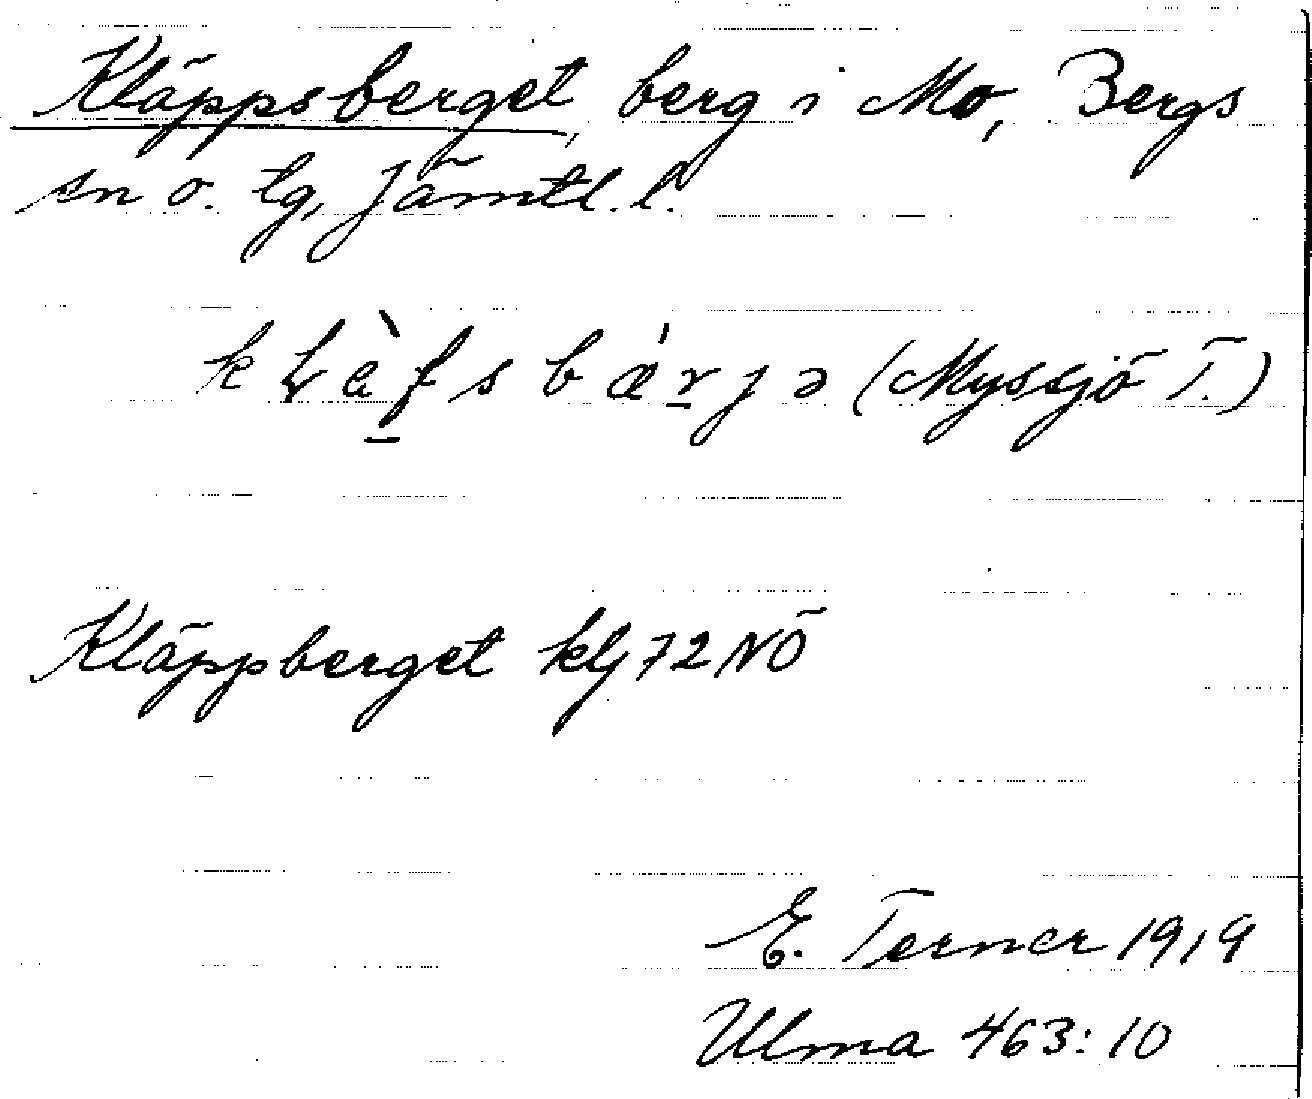 Kläppsberget, berg i Mo, Bergs
sn o. tg, Jämtl. l.
kḷæ̀fsbǽrjə (Myssjö T.)
Kläppberget kbl 72 NÖ
E. Terner 1919
Ulma 463:10